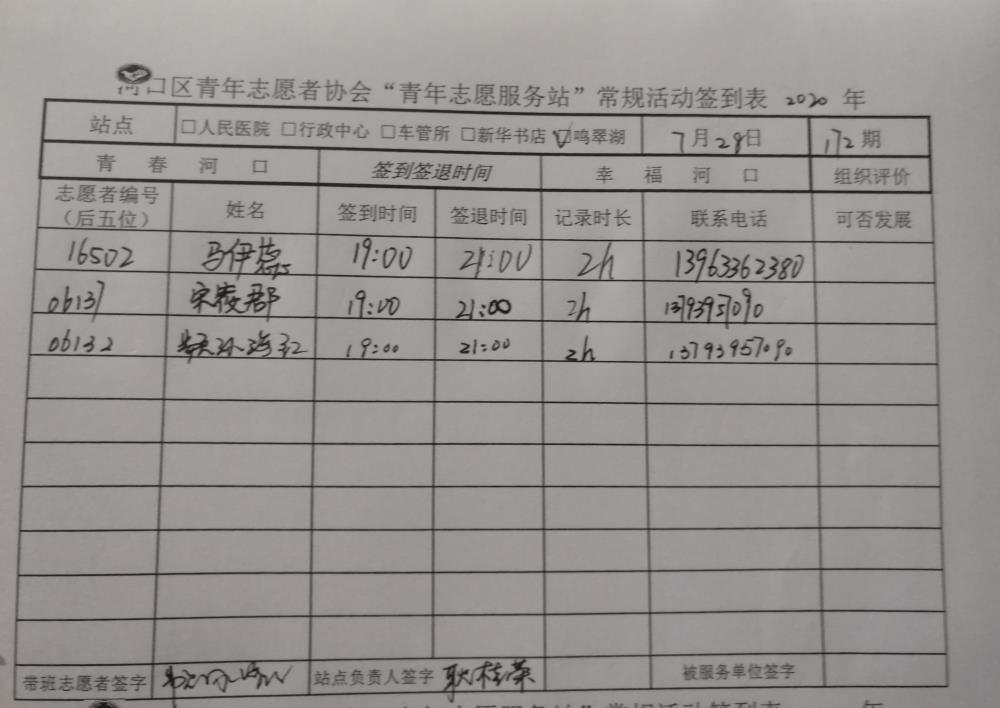 河口区青年志愿者协会“青年志愿服务站”常规活动签到表 2020 年
站点 □人民医院 □行政中心 □车管所 □新华书店 ☑鸣翠湖 7月29日 172期
青春河口 签到签退时间 幸福河口 组织评价
志愿者编号（后五位） 姓名 签到时间 签退时间 记录时长 联系电话 可否发展
16502 马伊蕊 19:00 21:00 2h 13963362380
06137 宋俊郡 19:00 21:00 2h 13793957090
06132 19:00 21:00 2h 13793957090
带班志愿者签字 站点负责人签字 耿桂荣 被服务单位签字